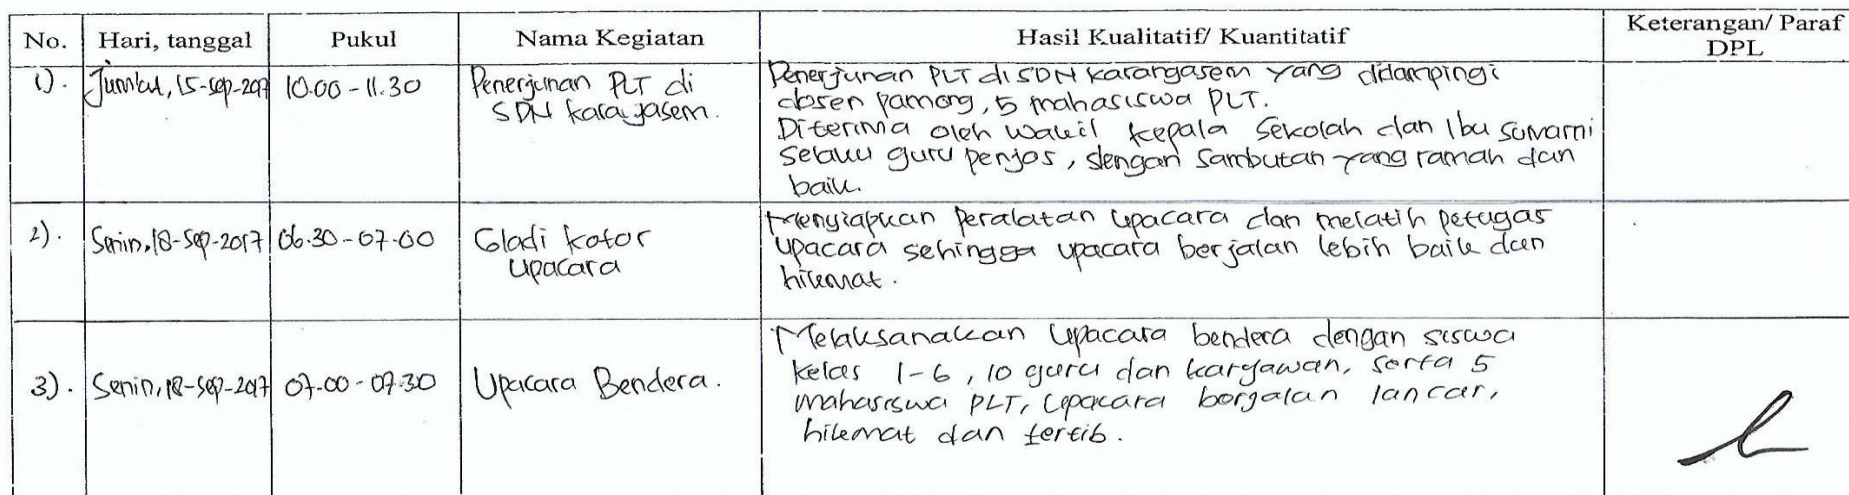 No. Hari, tanggal Pukul Nama Kegiatan Hasil Kualitatif/ Kuantitatif Keterangan/ Paraf DPL
1). Jum'at, 15-sep-2017 10.00 - 11.30 Penerjunan PLT di SDN karangasem.
Penerjunan PLT di SDN karangasem yang didampingi
dosen pamong, 5 mahasiswa PLT.
Diterima oleh wakil kepala sekolah dan Ibu sumarni
selaku guru penjas, dengan sambutan yang ramah dan
baik.
2). Senin, 18-sep-2017 06.30 - 07.00 Gladi kotor upacara
Menyiapkan peralatan upacara dan melatih petugas
upacara sehingga upacara berjalan lebih baik dan
hikmat.
3). Senin, 18-sep-2017 07.00 - 07.30 Upacara Bendera.
Melaksanakan upacara bendera dengan siswa
kelas 1-6, 10 guru dan karyawan, serta 5
mahasiswa PLT, upacara berjalan lancar,
hikmat dan tertib.